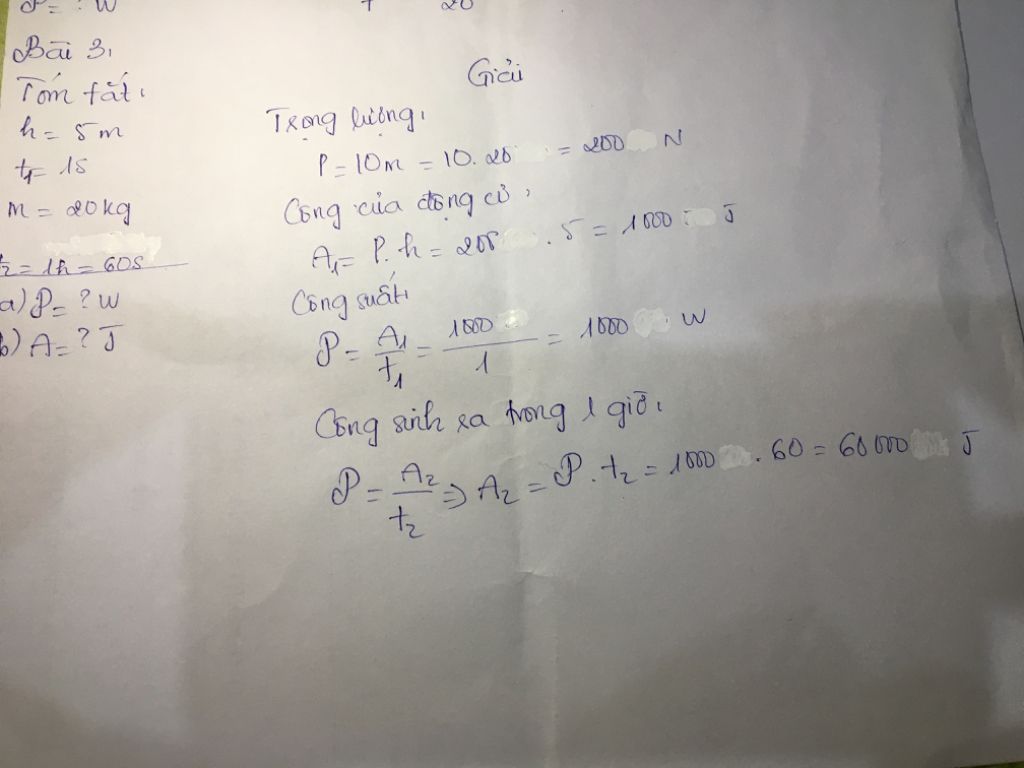 P = ? W
20
Bài 3,
Tóm tắt,
h = 5m
t1 = 1s
m = 20kg
t2 = 1h = 60s
a) P = ? W
b) A = ? J
Giải
Trọng lượng,
P = 10m = 10.20 = 200 N
Công của động cơ,
A1 = P.h = 200 . 5 = 1000 J
Công suất,
P = A1/t1 = 1000/1 = 1000 W
Công sinh ra trong 1 giờ,
P = A2/t2 => A2 = P . t2 = 1000 . 60 = 60000 J